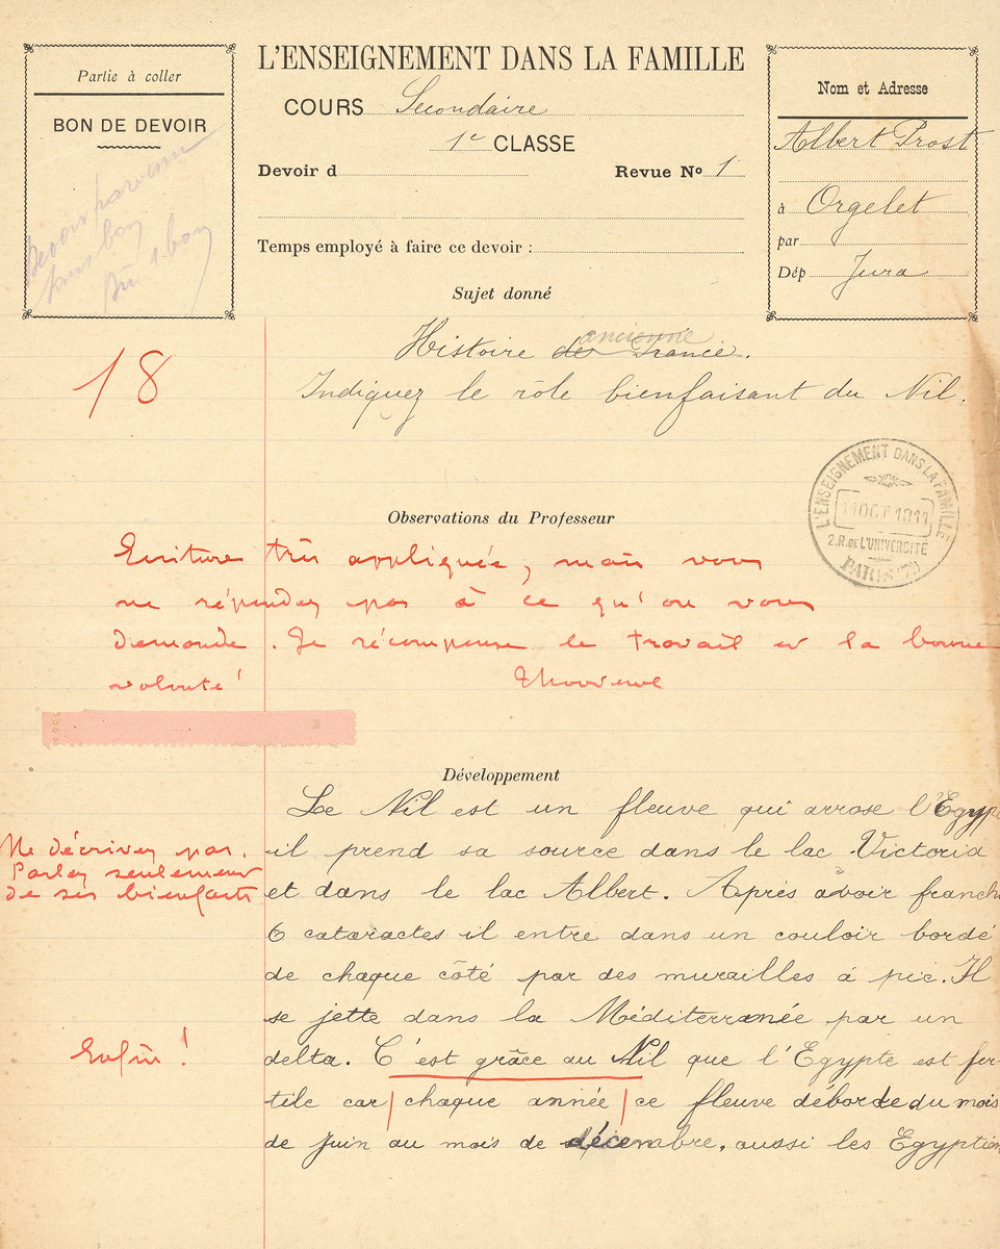 Partie à coller
BON DE DEVOIR
Devoir parvenu
sans bon
Dû 1 bon
L'ENSEIGNEMENT DANS LA FAMILLE
COURS Secondaire
1e CLASSE
Devoir d
Revue No 1
Temps employé à faire ce devoir :
Nom et Adresse
Albert Prost
à Orgelet
par
Dép Jura
Sujet donné
ancienne
Histoire de France.
18
Indiquez le rôle bienfaisant du Nil.
L'ENSEIGNEMENT DANS LA FAMILLE
11 OCT 1911
2.R. DE L'UNIVERSITÉ
PARIS
Observations du Professeur
Ecriture très appliquée, mais vous
ne répondez pas à ce qu'on vous
demande. Je récompense le travail et la bonne
volonté !
Développement
Le Nil est un fleuve qui arrose l'Egypte
il prend sa source dans le lac Victoria
et dans le lac Albert. Après avoir franchi
6 cataractes il entre dans un couloir bordé
de chaque côté par des murailles à pic. Il
se jette dans la Méditerranée par un
delta. C'est grâce au Nil que l'Egypte est fer-
tile car chaque année ce fleuve déborde du mois
de Juin au mois de décembre, aussi les Egyptien
Ne décrivez pas.
Parlez seulement
de ses bienfaits
Enfin !